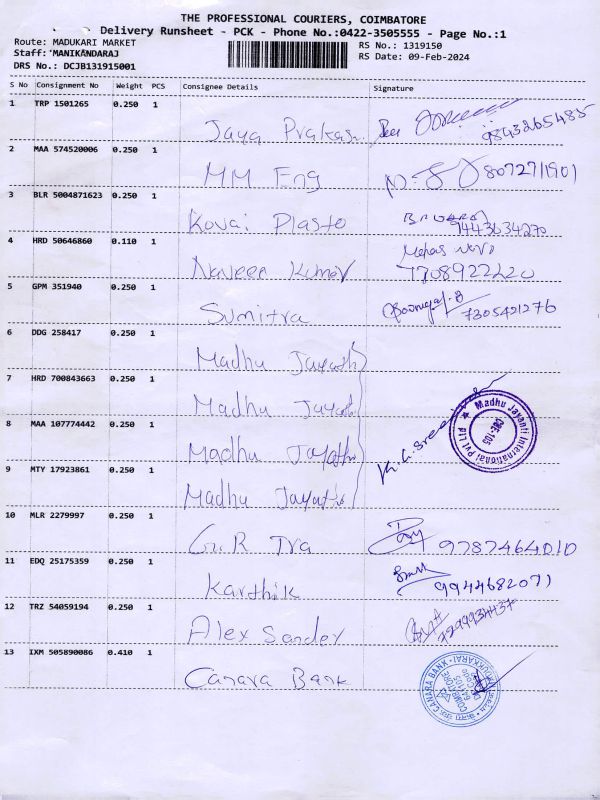 THE PROFESSIONAL COURIERS, COIMBATORE
Delivery Runsheet - PCK - Phone No.:0422-3505555 - Page No.:1
Route: MADUKARI MARKET
RS No.: 1319150
Staff: MANIKANDARAJ
RS Date: 09-Feb-2024
DRS No.: DCJB131915001
S No Consignment No Weight PCS Consignee Details Signature
1 TRP 1501265 0.250 1
Jaya Prakash 9843265485
2 MAA 574520006 0.250 1
MM Eng 8072711901
3 BLR 5004871623 0.250 1
Kovai Plasto 9443634270
4 HRD 50646860 0.110 1
Naveen Kumar 7708922220
5 GPM 351940 0.250 1
Sumitra 7305421276
6 DDG 258417 0.250 1
Madhu Jayanth
7 HRD 700843663 0.250 1
Madhu Jayanth
8 MAA 107774442 0.250 1
Madhu Jayanth
9 MTY 17923861 0.250 1
Madhu Jayanth
Madhu Jayanti International Pvt Ltd FTT
CBE-105
10 MLR 2279997 0.250 1
9787464010
11 EDQ 25175359 0.250 1
Karthik 9944682071
12 TRZ 54059194 0.250 1
Alex Sandey 7299934437
13 IXM 505890086 0.410 1
Canara Bank
CANARA BANK